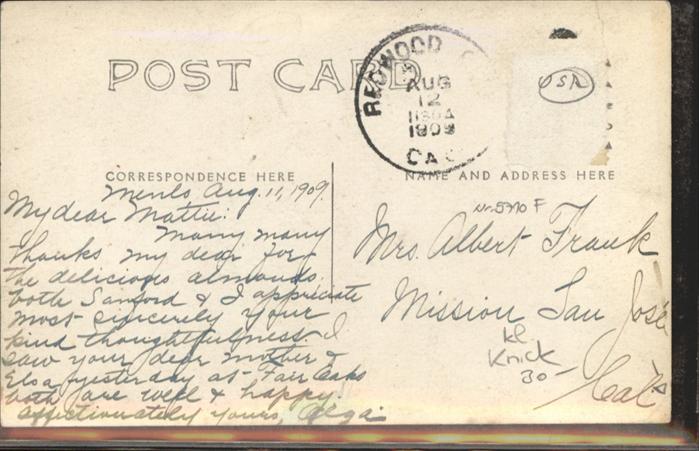 POST CARD
REDWOOD
AUG
12
1909
CAL
OSA
CORRESPONDENCE HERE
NAME AND ADDRESS HERE
Menlo Aug. 11, 1909.
My dear Mattie:
Many many
thanks my dear for
the delicious almonds.
both Sanford & I appreciate
most sincerely your
kind thoughtfulness. I
saw your dear mother &
Elsa yesterday at Fair Oaks
both are well & happy.
Affectionately yours, Olga
Nr. 5770 F
Mrs. Albert Frank
Mission San José
Kl
Knick
30-
Cal